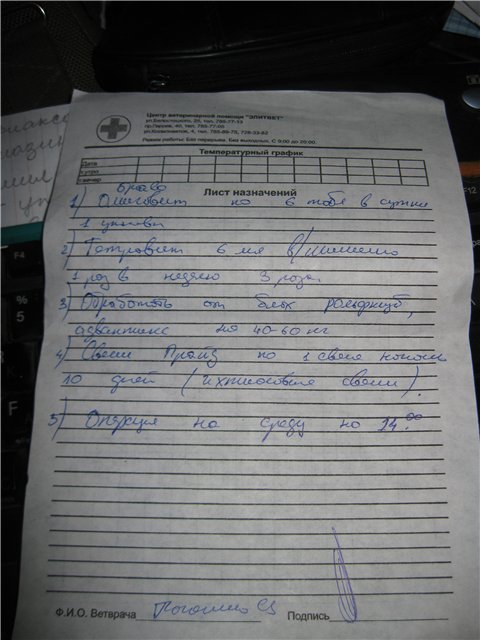 Центр ветеринарной помощи "ЭЛИТВЕТ"
ул.Белостоцкого, 25, тел. 785-77-33
пр.Героев, 40, тел. 785-77-05
ул.Космонавтов, 4, тел. 785-89-75, 728-33-62
Режим работы: Без перерыва. Без выходных. С 9:00 до 20:00.
Температурный график
Дата
t утро
t вечер
Браво
Лист назначений
1) по 6 табл в сутки
1 упаковка
2) 6 мл в/мышечно
1 раз в неделю 3 раза.
3) Обработать от блох рольфклуб,
адвантикс на 40-60 кг
4) Свечи по 1 свече
10 дней (ихтиоловые свечи).
5) Операция на среду на 14.00
Ф.И.О. Ветврача
Подпись